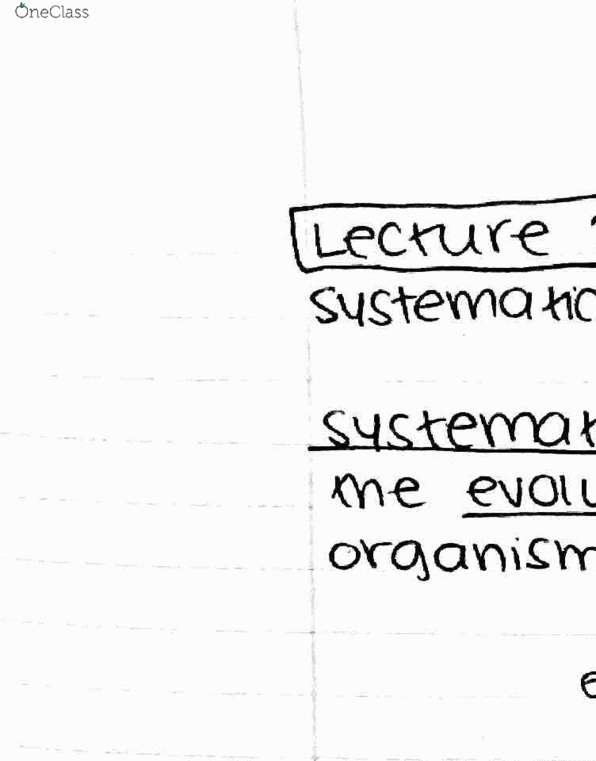 OneClass
Lecture
systematic
systemat
the evolu
organism
e